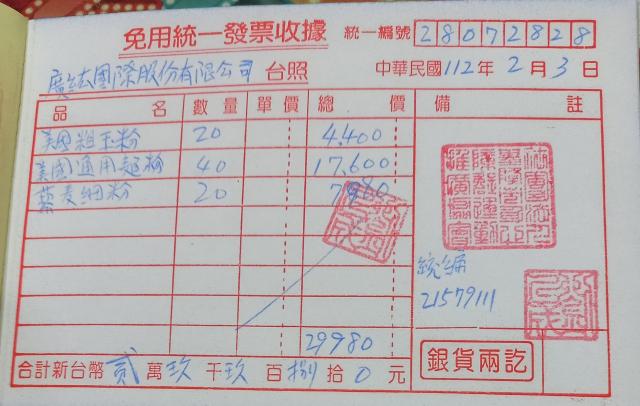 免用統一發票收據 統一編號 28072828
國際股份有限公司 台照 中華民國 112 年 2 月 3 日
品名 數量 單價 總價 備註
美國粗玉粉 20 4,400
美國通用麵粉 40 17,600
蕎麦細粉 20 7980
統編
21579111
29980
合計新台幣 貳 萬 玖 千 玖 百 捌 拾 0 元 銀貨兩訖